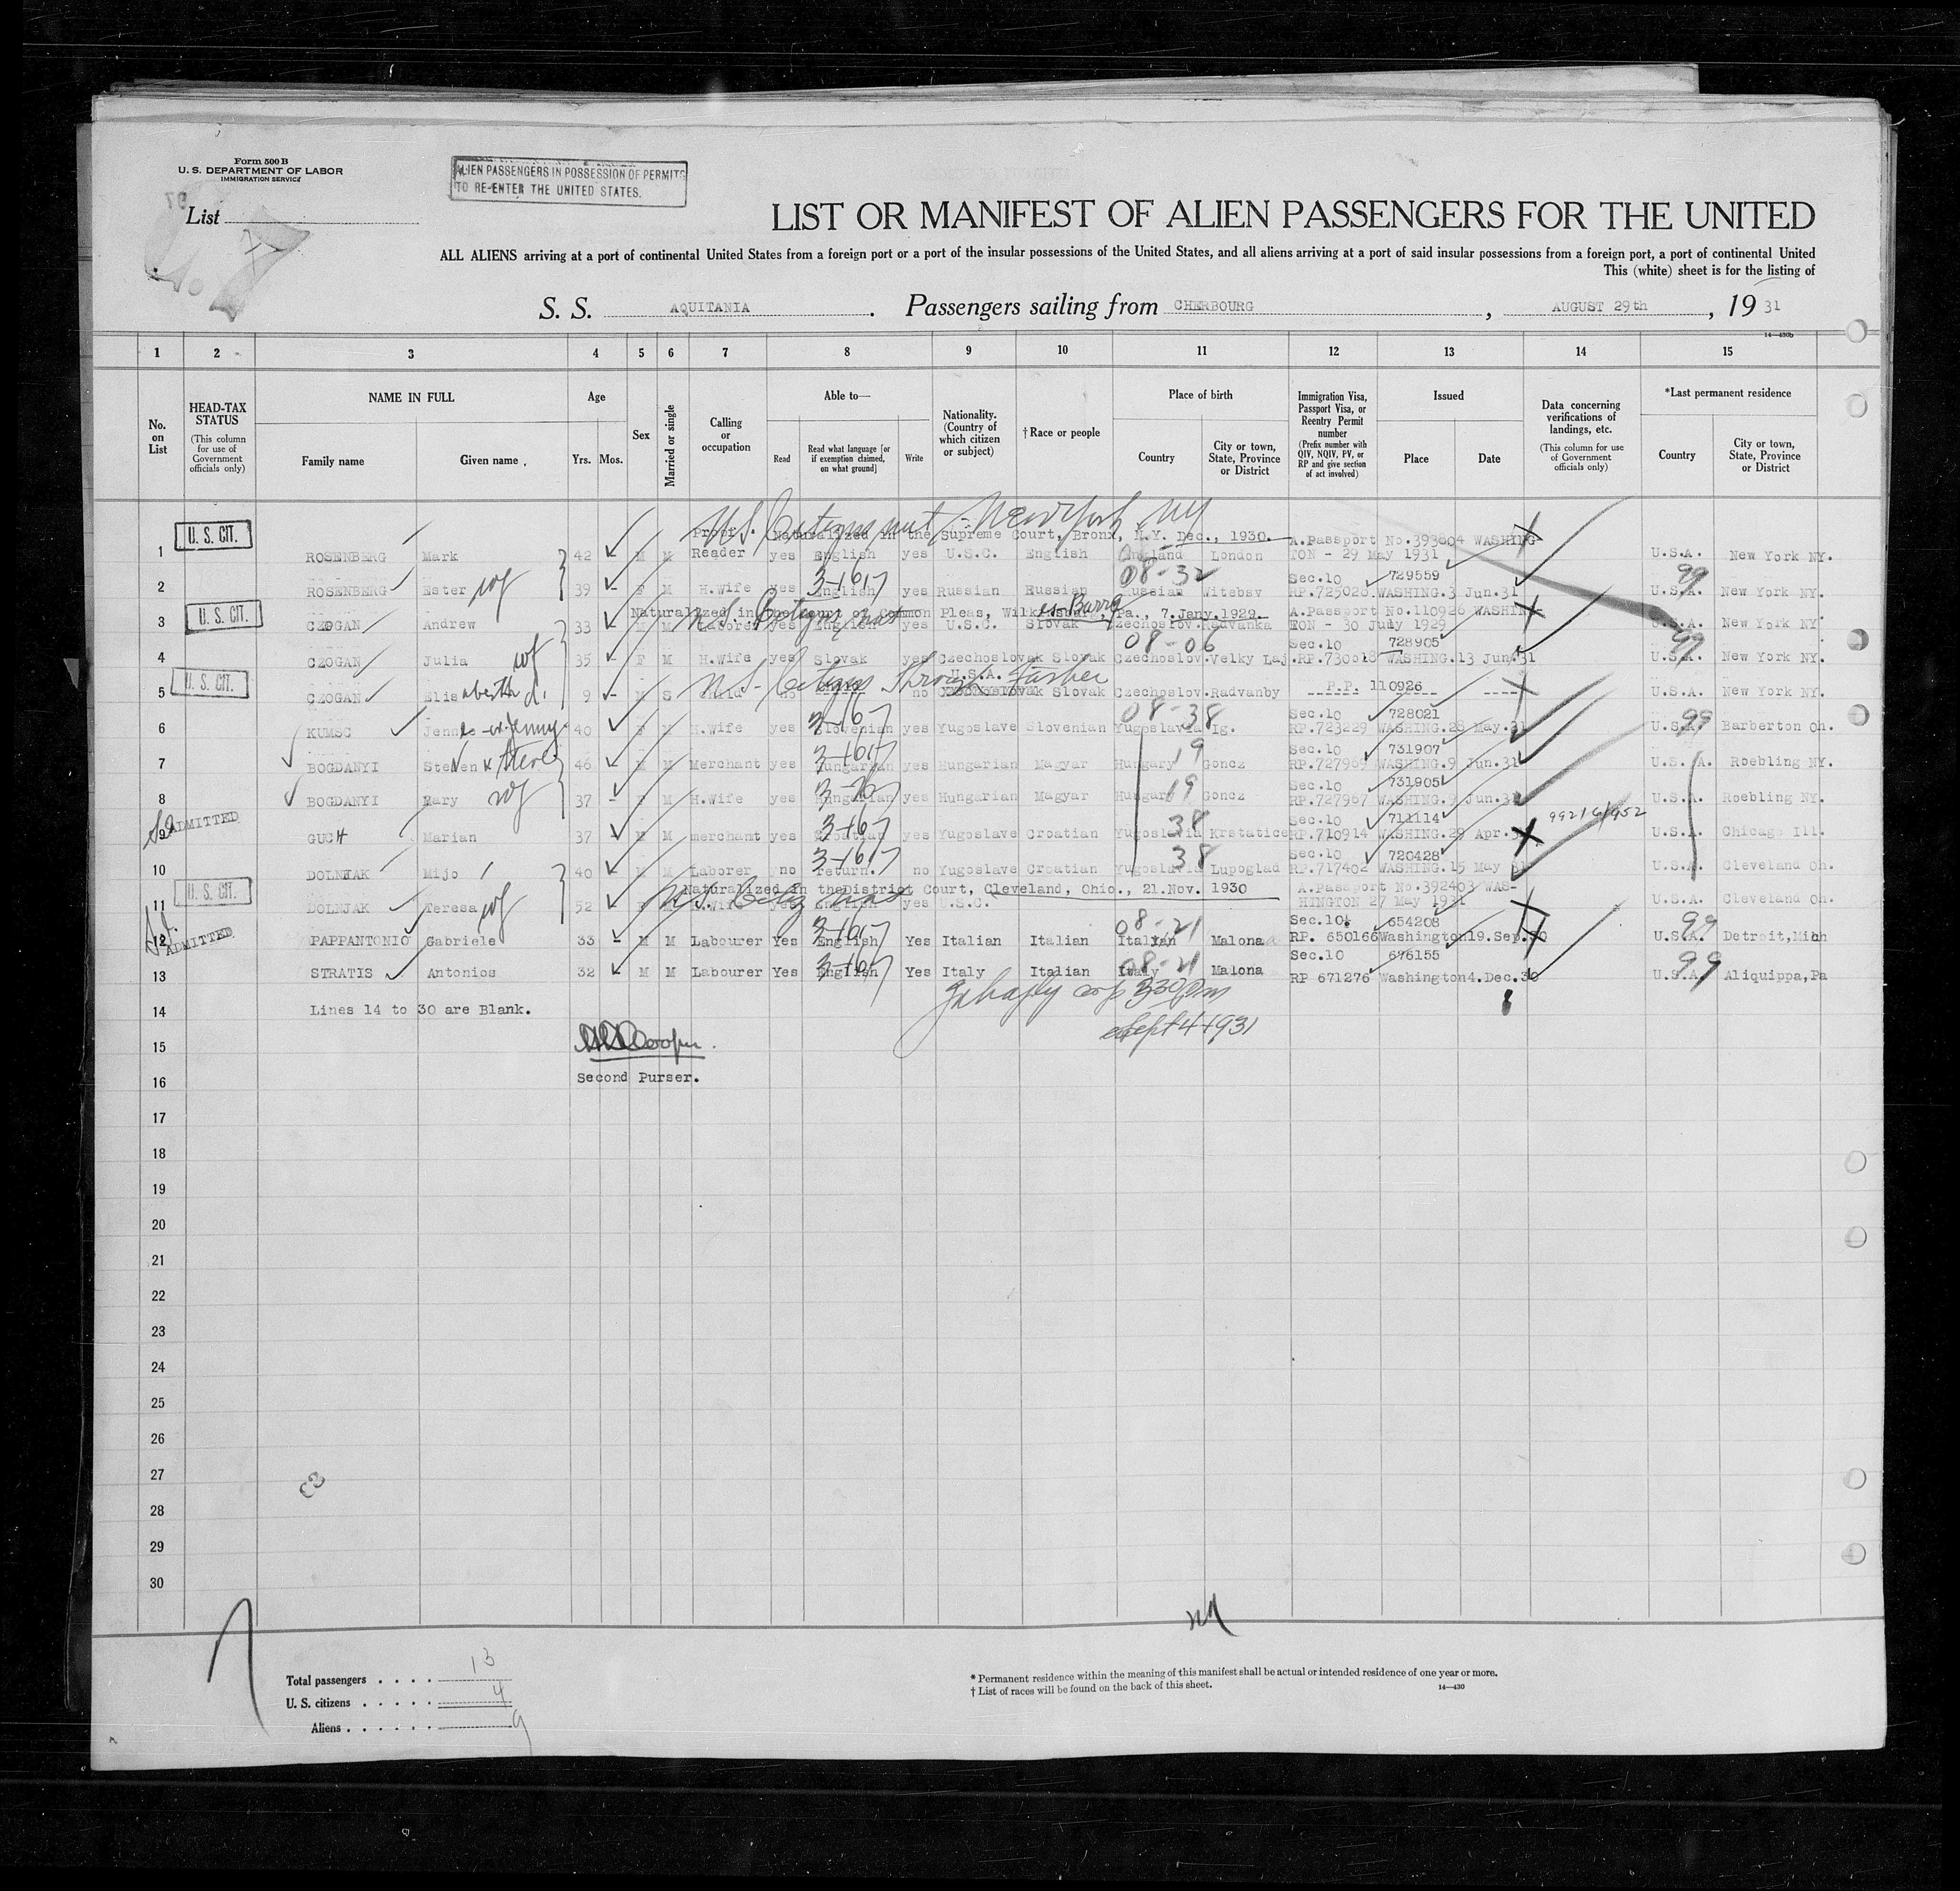 Form 500 B
U. S. DEPARTMENT OF LABOR
IMMIGRATION SERVICE
ALIEN PASSENGERS IN POSSESSION OF PERMITS
TO RE-ENTER THE UNITED STATES.
List
LIST OR MANIFEST OF ALIEN PASSENGERS FOR THE UNITED
ALL ALIENS arriving at a port of continental United States from a foreign port or a port of the insular possessions of the United States, and all aliens arriving at a port of said insular possessions from a foreign port, a port of continental United
This (white) sheet is for the listing of
S. S. AQUITANIA. Passengers sailing from CHERBOURG, AUGUST 29th, 19 31
14—430b
1 2 3 4 5 6 7 8 9 10 11 12 13 14 15
No. on List
HEAD-TAX STATUS (This column for use of Government officials only)
NAME IN FULL Family name Given name
Age Yrs. Mos.
Sex
Married or single
Calling or occupation
Able to— Read Read what language [or if exemption claimed, on what ground] Write
Nationality. (Country of which citizen or subject)
† Race or people
Place of birth Country City or town, State, Province or District
Immigration Visa, Passport Visa, or Reentry Permit number (Prefix number with QIV, NQIV, PV, or RP and give section of act involved)
Issued Place Date
Data concerning verifications of landings, etc. (This column for use of Government officials only)
*Last permanent residence Country City or town, State, Province or District
New York, NY
U. S. CIT. Naturalized in the Supreme Court, Bronx, N.Y. Dec., 1930. A.Passport No.393604 WASHING-
1 ROSENBERG Mark 42 M M Reader yes English yes U.S.C. English England London TON - 29 May 1931 U.S.A. New York NY.
3-1617 08-32 Sec.10 729559 99
2 ROSENBERG Ester wf 39 - F M H.Wife yes English yes Russian Russian Russian Witebsv RP.725026 WASHING.3 Jun.31 U.S.A. New York NY.
U. S. CIT. Naturalized in the Court of Common Pleas, Wilkes-Barre, Pa., 7.Jany.1929. A.Passport No.110926 WASHIN-
3 CZOGAN Andrew 33 M M Laborer yes English yes U.S.C. Slovak Czechoslov.Radvanka TON - 30 July 1929 U.S.A. New York NY.
08-06 Sec.10 728905 99
4 CZOGAN Julia wf 35 - F M H.Wife yes Slovak yes Czechoslovak Slovak Czechoslov.Velky Laj. RP.730018 WASHING.13 Jun.31 U.S.A. New York NY.
U. S. CIT. U.S. Citizen through Father U.S.A. P.P. 110926
5 CZOGAN Elisabeth d. 9 - M S Child no no Czechoslovak Slovak Czechoslov.Radvanby U.S.A. New York NY.
08-38 Sec.10 728021 99
6 KUMSC Jennie or Jenny 40 F M H.Wife yes Slovenian yes Yugoslave Slovenian Yugoslavia Ig. RP.723229 WASHING.28 May.31 U.S.A. Barberton Oh.
3-1617 19 Sec.10 731907
7 BOGDANYI Steven 46 M M Merchant yes Hungarian yes Hungarian Magyar Hungary Goncz RP.727969 WASHING.9 Jun.31 U.S.A. Roebling NY.
19 Sec.10 731905
8 BOGDANYI Mary wf 37 - F M H.Wife yes Hungarian yes Hungarian Magyar Hungary Goncz RP.727967 WASHING.9 Jun.31 U.S.A. Roebling NY.
ADMITTED 38 Sec.10 711114
9 GUCH Marian 37 M M merchant yes Croatian yes Yugoslave Croatian Yugoslavia Krstatice RP.710914 WASHING.29 Apr.31 U.S.A. Chicago Ill.
3-1617 38 Sec.10 720428
10 DOLNJAK Mijo 40 M M Laborer no return. no Yugoslave Croatian Yugoslavia Lupoglad RP.717402 WASHING.15 May 31 U.S.A. Cleveland Oh.
U. S. CIT. Naturalized in the District Court, Cleveland, Ohio., 21.Nov. 1930 A.Passport No.392403 WAS-
11 DOLNJAK Teresa wf 52 F M H.Wife yes English yes U.S.C. HINGTON 27 May 1931 U.S.A. Cleveland Oh.
ADMITTED 3-1617 08-21 Sec.10. 654208 99
12 PAPPANTONIO Gabriele 33 - M M Labourer Yes English Yes Italian Italian Italian Malona RP. 650166 Washington 19.Sep.30 U.S.A. Detroit, Mich
3-1617 08-21 Sec.10 676155 99
13 STRATIS Antonios 32 M M Labourer Yes English Yes Italy Italian Italy Malona RP 671276 Washington 4.Dec.30 U.S.A. Aliquippa, Pa
330 pm
14 Lines 14 to 30 are Blank.
Sept 4 1931
15 Cooper.
16 Second Purser.
17
18
19
20
21
22
23
24
25
26
27
28
29
30
Total passengers . . . . 13
U. S. citizens . . . . . 4
Aliens . . . . . . 9
* Permanent residence within the meaning of this manifest shall be actual or intended residence of one year or more.
† List of races will be found on the back of this sheet. 14—430